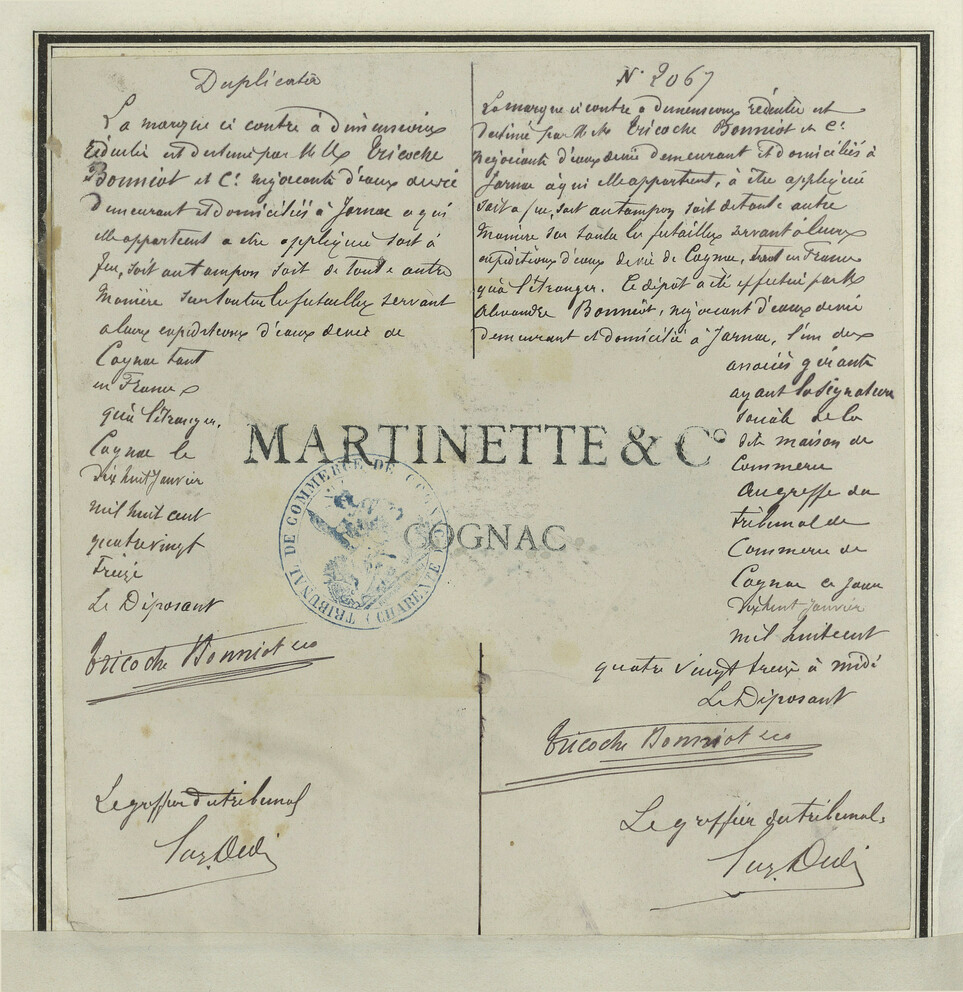 Duplicata
La marque ci contre à dimensions
réduite est destiné par MM Tricoche
Bonniot et Cie négociants d'eaux de vie
demeurant et domiciliés à Jarnac a qui
elle appartient a etre appliqué soit à
feu, soit au tampon soit de toute autre
Manière sur toutes les futailles servant
a leurs expéditions d'eaux de vie de
Cognac tant
en France
qu'à l'étranger.
Cognac le
Dix huit Janvier
mil huit cent
quatre vingt
Treize
Le Déposant
Tricoche Bonniot & Co
Le greffier du tribunal
N° 2067
La marque ci contre a dimensions réduite est
destiné par MM Tricoche Bonniot et Cie
Négociants d'eaux de vie demeurant et domiciliés à
Jarnac à qui elle appartient, à être appliqué
soit a feu, soit au tampon soit de toute autre
Manière sur toutes les futailles servant à leurs
expéditions d'eaux de vie de Cognac, tant en France
qu'à l'étranger. Ce dépôt a été effectué par M
Alexandre Bonniot, négociant d'eaux de vie
demeurant et domicilié à Jarnac, l'un des
associés gérants
ayant la signature
sociale de la
dite maison de
Commerce
au greffe du
tribunal de
Commerce de
Cognac ce jour
Dix huit Janvier
mil huit cent
quatre vingt treize à midi
Le Déposant
Tricoche Bonniot & Co
Le greffier du tribunal
MARTINETTE & Co
COGNAC
TRIBUNAL DE COMMERCE DE COGNAC (CHARENTE)